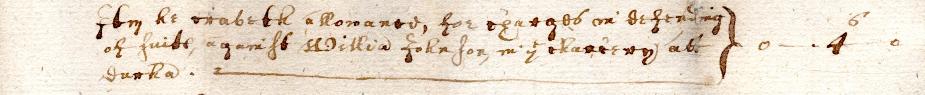 Itm he craveth allowance, for charges in defending
of suite, against Willia Johnson, in ye chancery att
durha . 0 — . 4 0
6